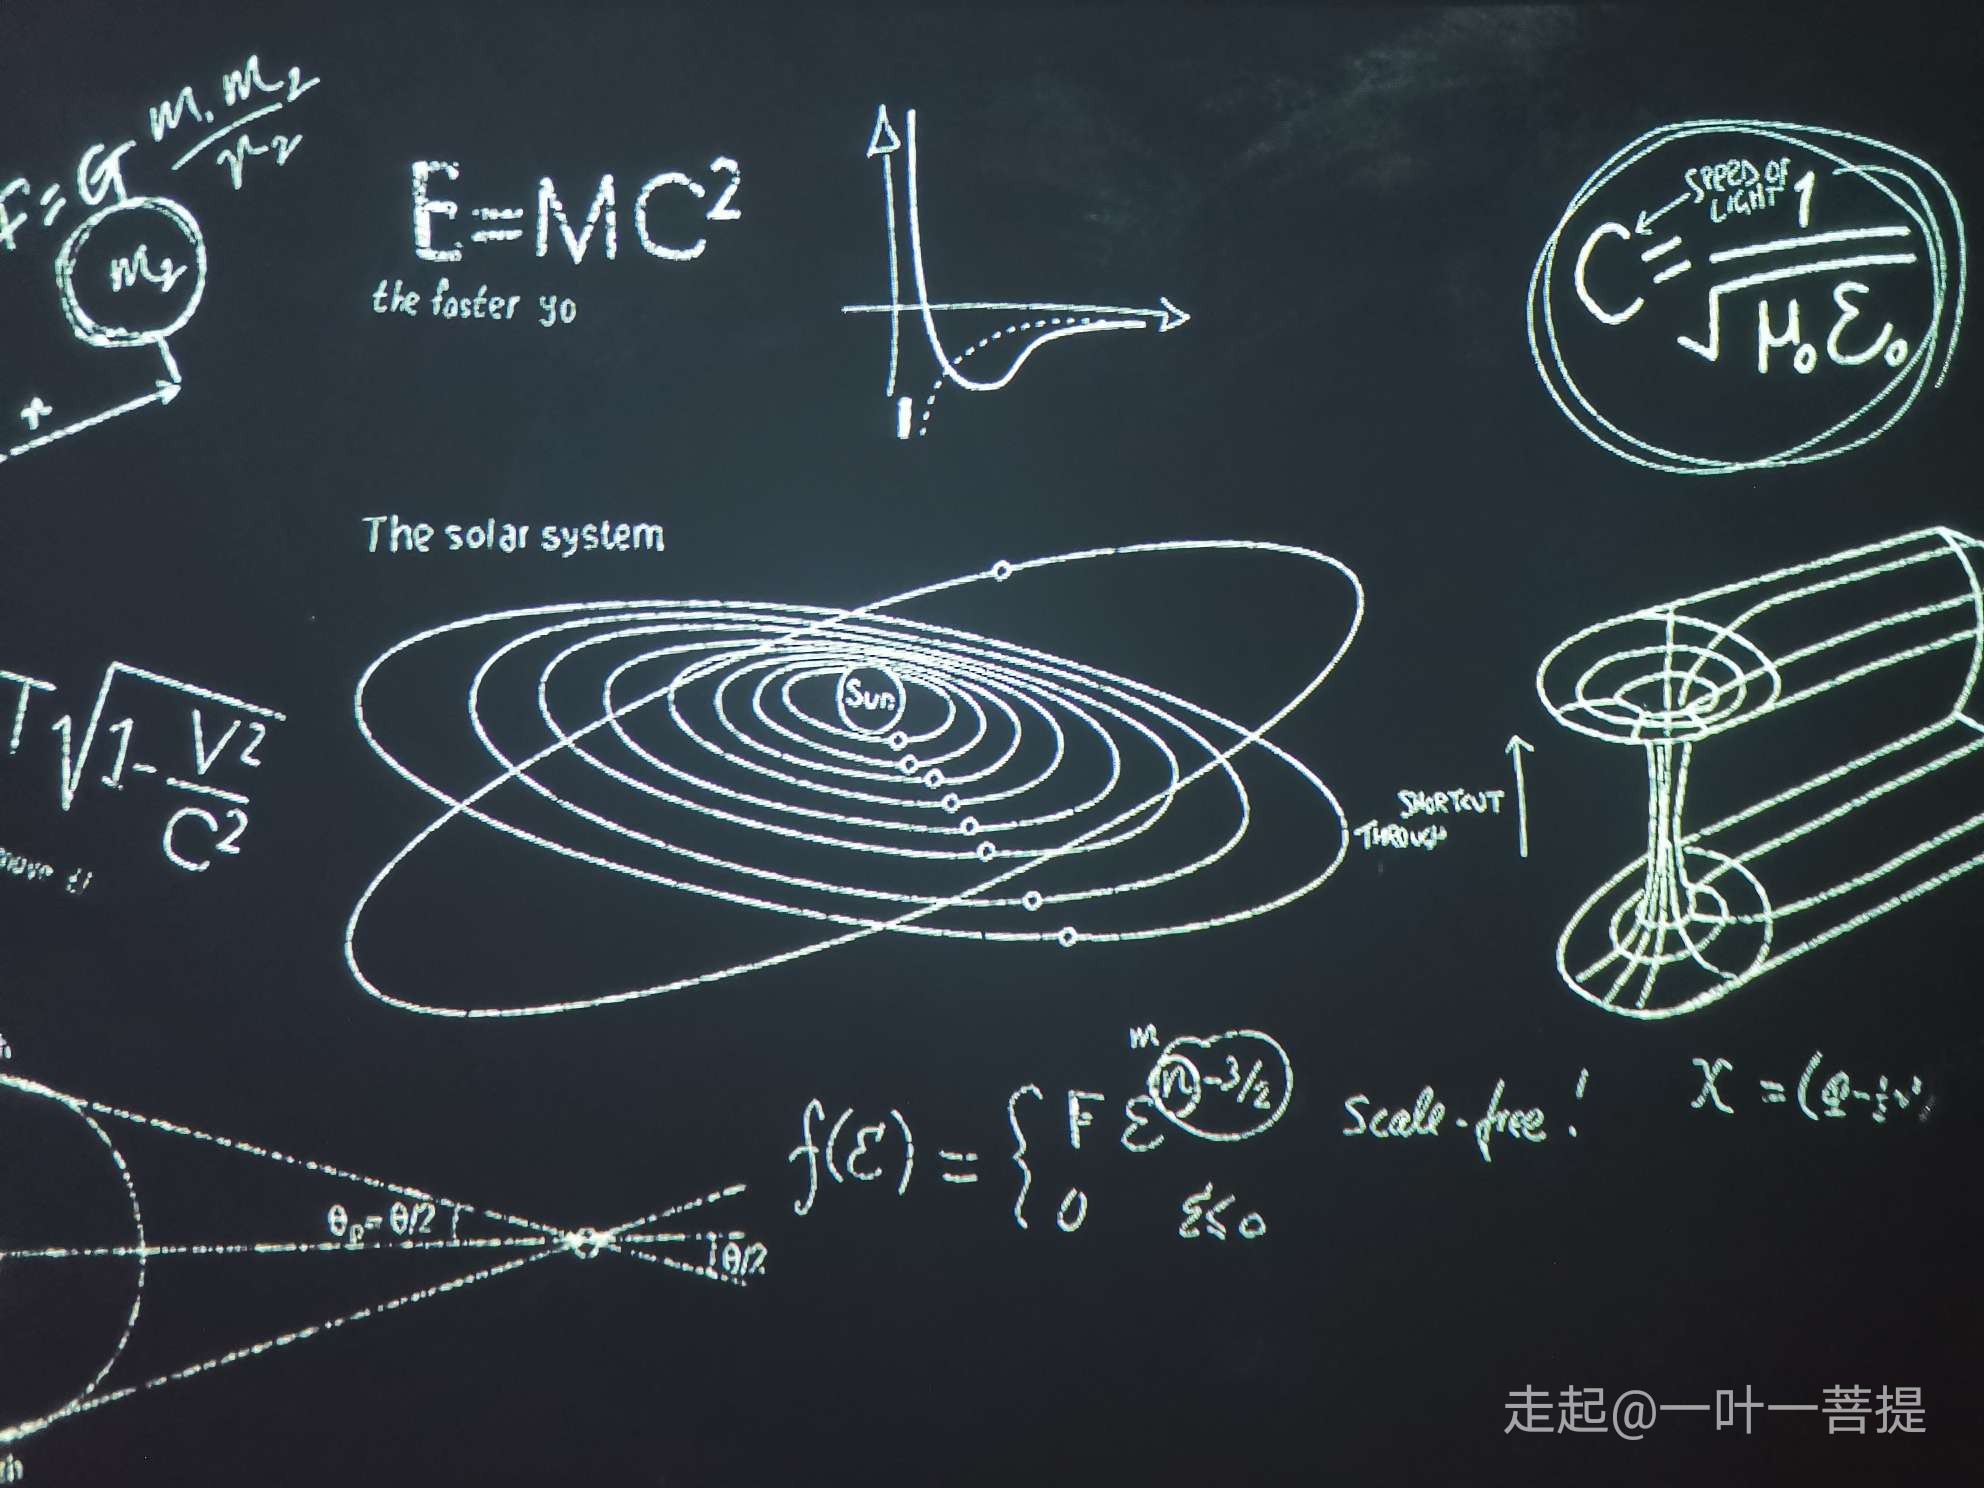 F=G m1 m2 / r2
m2
r
E=MC²
the faster yo
SPEED OF
LIGHT
C = 1 / √μ₀ε₀
The solar system
Sun
T√1-V²/C²
move
SHORTCUT
THROUGH
θp=θ/2
θ/2
m
f(ε) = { F ε^n-3/2
0 ε≤0
Scale-free!
X = (
走起@一叶一菩提